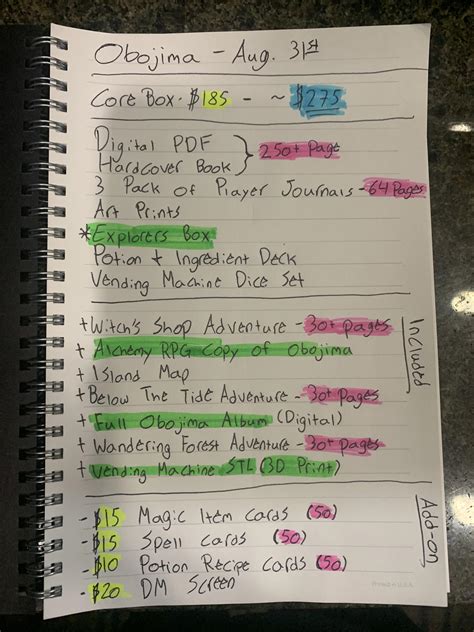 Obojima - Aug. 31st
Core Box - $185 - ~ $275
Digital PDF
Hardcover Book } 250+ Page
3 Pack of Player Journals - 64 Pages
Art Prints
*Explorers Box
Potion + Ingredient Deck
Vending Machine Dice Set
Included
+ Witch's Shop Adventure - 30+ pages
+ Alchemy RPG Copy of Obojima
+ Island Map
+ Below The Tide Adventure - 30+ Pages
+ Full Obojima Album (Digital)
+ Wandering Forest Adventure - 30+ Pages
+ Vending Machine STL (3D Print)
Add-on
- $15 Magic Item Cards (50)
- $15 Spell Cards (50)
- $10 Potion Recipe Cards (50)
- $20 DM Screen